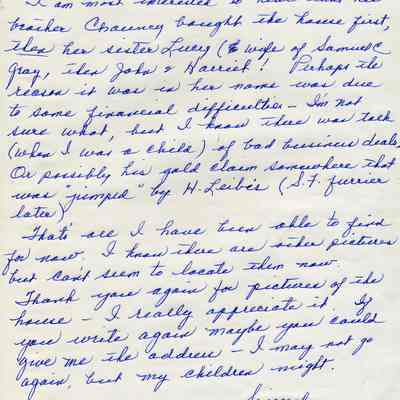 I am most interested to learn that her
brother Chauncy bought the house first,
then her sister Lucy (& wife of Samuel C
Gray, then John & Harriet! Perhaps the
reason it was in her name was due
to some financial difficulties - I'm not
sure what, but I know there was talk
(when I was a child) of bad business deals,
Or possibly his gold claim somewhere that
was "jumped" by H. Leibes (S.F. furrier
later)
That's all I have been able to find
for now. I know there are other pictures
but can't seem to locate them now.
Thank you again for pictures of the
house - I really appreciate it. If
you write again maybe you could
give me the address - I may not go
again, but my children might.